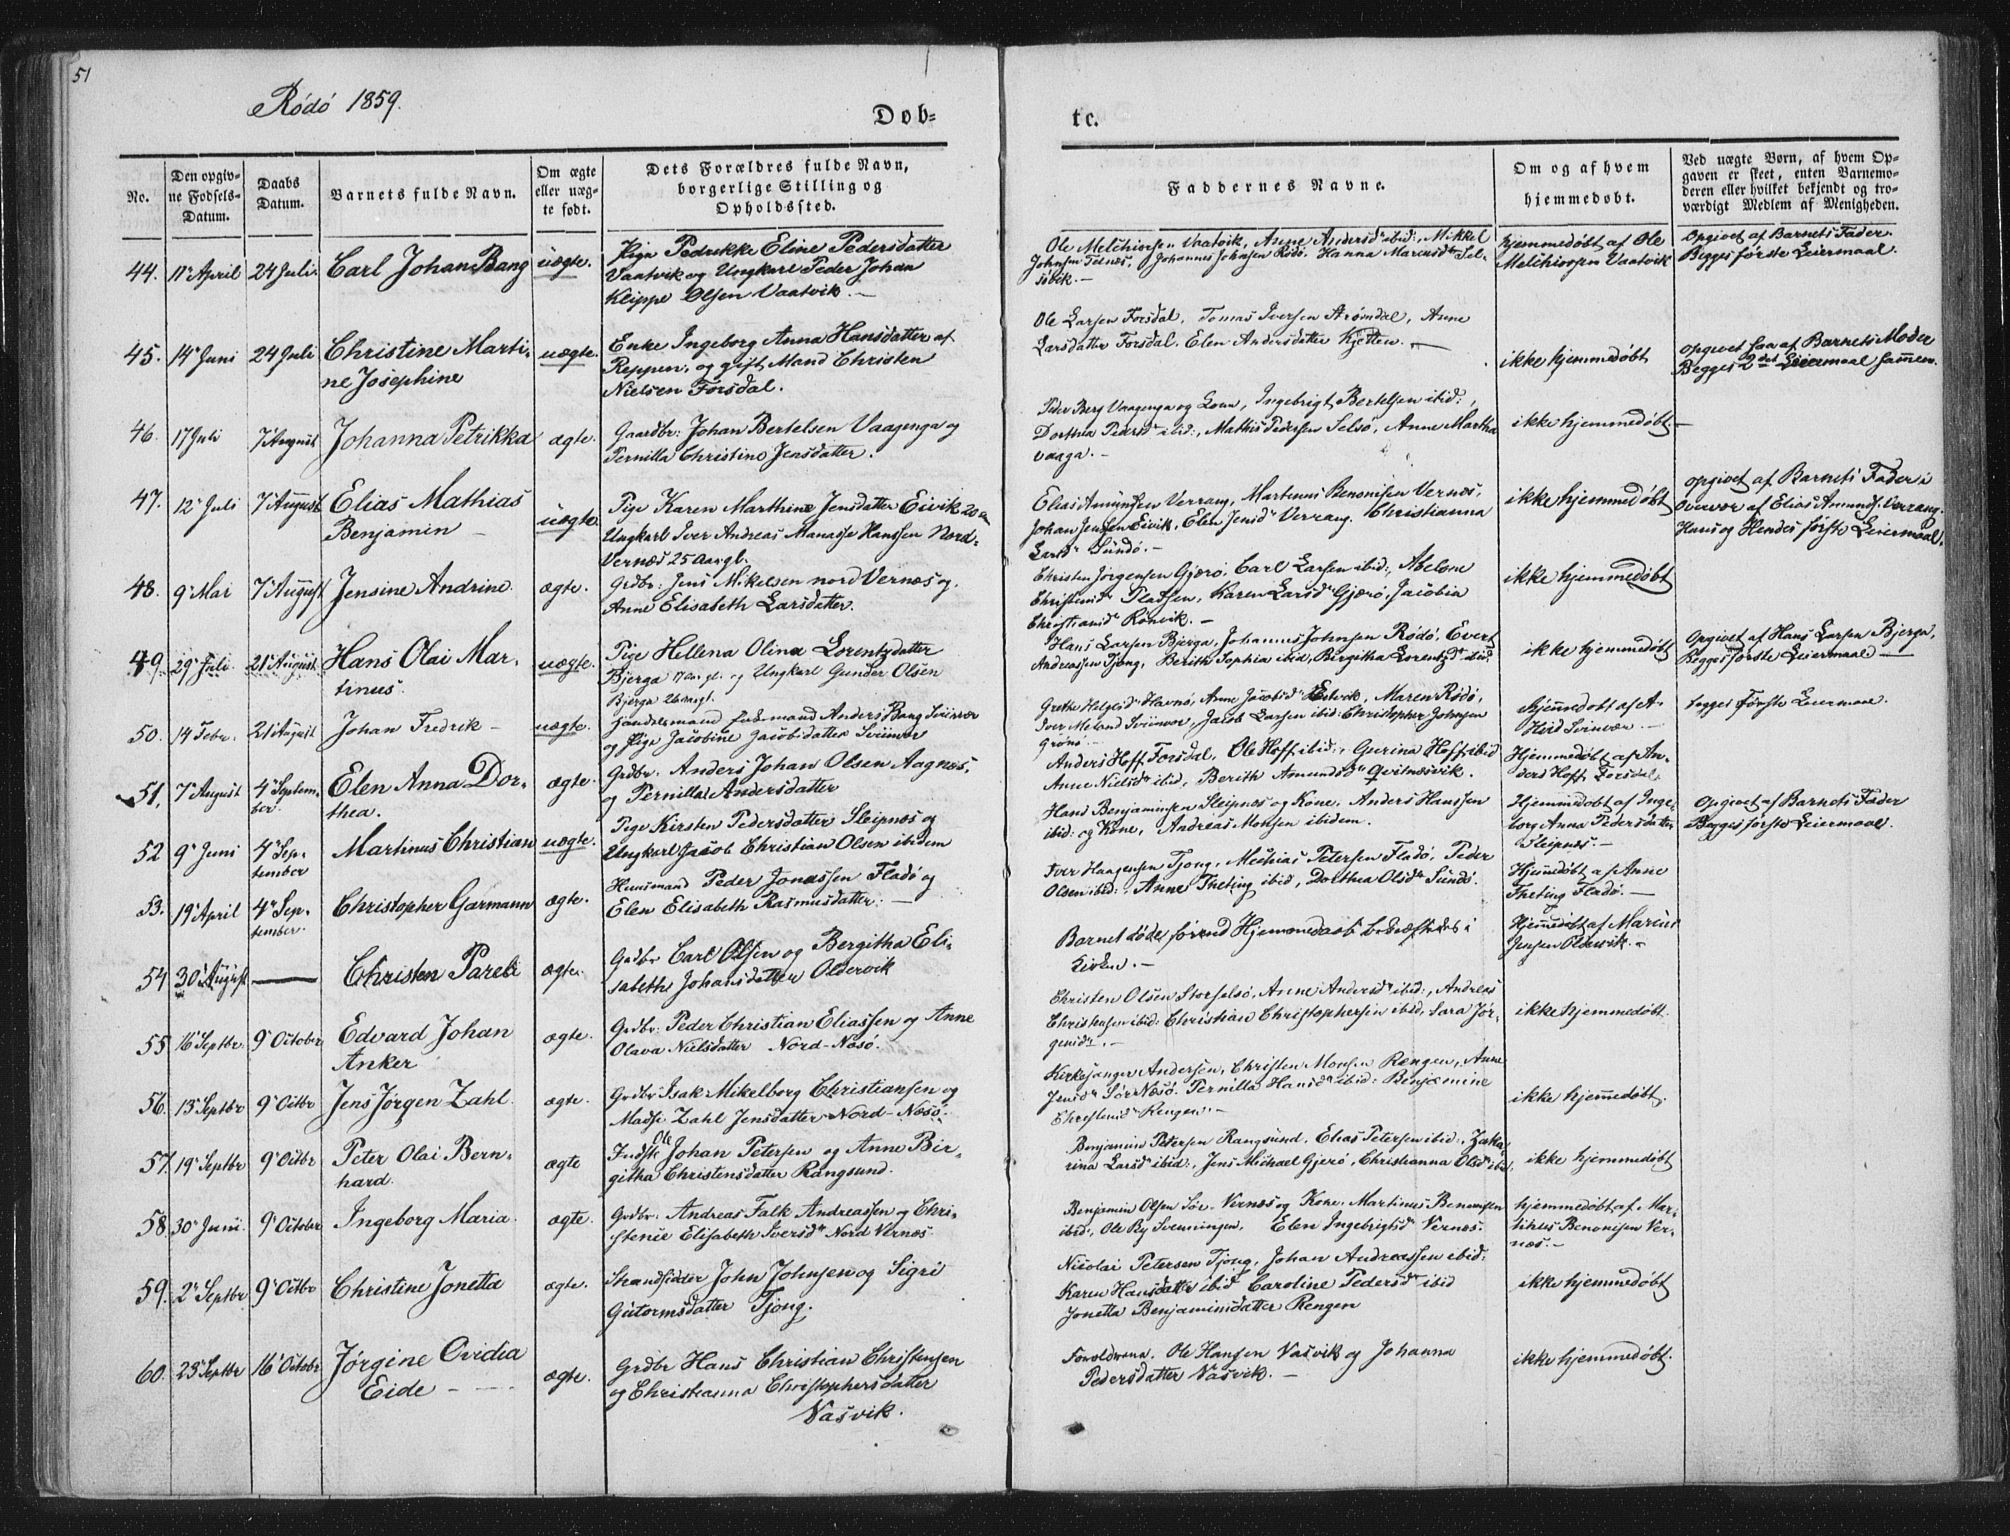 51
Rödö 1859.
Døb-
te.
No.
Den opgiv-
ne Fødsels-
Datum.
Daabs
Datum.
Barnets fulde Navn.
Om ægte
eller uæg-
te født.
Dets Forældres fulde Navn,
borgerlige Stilling og
Opholdssted.
Faddernes Navne.
Om og af hvem
hjemmedøbt.
Ved uægte Børn, af hvem Op-
gaven er skeet, enten Barnemo-
deren eller hvilket bekjendt og tro-
værdigt Medlem af Menigheden.
44. 11te April 24 Juli Carl Johan Bang uægte. Pige Pedrikke Eline Pedersdatter
Vaatvik og Ungkarl Peder Johan
Klippe Olsen Vaatvik.
Ole Melchiorsen Vaatvik, Anne Andersdr ibid: Mikkel
Johnsen Telnæs, Johannes Johnsen Rödö, Hanna Marensdr Sel-
søvik.
hjemmedøbt af Ole
Melchiorsen Vaatvik
Opgivet af Barnets Fader
Begges første Leiermaal.
45. 14 Juni 24 Juli Christine Marti-
ne Josephine
uægte. Enke Ingeborg Anna Hansdatter af
Reppen, og gift Mand Christen
Nielsen Forsdal.
Ole Larsen Forsdal, Tomas Iversen Strømdal, Anne
Larsdatter Forsdal, Elen Andersdatter Kjetten.
ikke hjemmedøbt
opgivet saa af Barnets Moder
Begges 2det Leiermaal sammen.
46. 17 Juli 7 August Johanna Petrikka ægte. Gaardbr: Johan Bertelsen Vaagenga og
Pernilla Christine Jensdatter.
Peder Berg Vaagenga og Kone, Ingebrigt Bertelsen ibid:,
Dorthea Pedersdr ibid:, Mathis Pedersen Selsø, Anne Martha
Vaaga.
ikke hjemmedøbt
47. 12 Juli 7 August Elias Mathias
Benjamin
uægte. Pige Karen Marthine Jensdatter Eivik 20
Ungkarl Iver Andreas Manasse Hanssen Nord-
Vernæs 25 aargl.
Elias Amundsen Verrang, Martinus Benonisen Vernæs,
Johan Jenssen Eivik, Elen Jensdr Verrang. Christianna
Larsdr Sundö.
ikke hjemmedøbt
opgivet af Barnets Fader i
Overvær af Elias Amunds. Verrang.
Hans og Hendes første Leiermaal.
48. 9 Mai 7 August Jensine Andrine. ægte. Grdbr: Jens Mikelsen nord Vernæs og
Anne Elisabeth Larsdatter.
Christen Jörgensen Gjærö. Carl Larsen ibid:, Abelone
Christensdr Pladsen, Karen Larsdr Gjærö, Jacobia
Christiansdr Rönvik.
ikke hjemmedøbt
49. 29 Juli. 21 August Hans Olai Mar-
tinus
uægte. Pige Hellena Olina Lorentzdatter
Bjerga 17 aargl. og Ungkarl Gunder Olsen
Bjerga 26 aargl.
Hans Larsen Bjerga, Johannes Johnsen Rödö, Evert
Andreassen Tjong, Berith Sophia ibid, Bergitha Lorentzdr ibid.
ikke hjemmedøbt
Opgivet af Hans Larsen Bjerga,
Begges første Leiermaal
50. 14 Febr. 21 August Johan Fredrik uægte. Handelsmand Anders Bang Sviinvær
og Pige Jacobine Jacobsdatter Sviinvær
Grethe Helgesdr Havnö, Anne Jacobsdr Estvik, Maren Rödö,
Iver Meland Sviinvær, Jacob Larsen ibid: Christopher Johnsen
Grönö
hjemmedøbt af A.
Hvid Svinvær.
begges Første Leiermaal.
51. 7 August 4 Septem-
ber.
Elen Anna Dor-
thea.
ægte. Grdbr. Anders Johan Olsen Aagnæs,
og Pernilla Andersdatter
Anders Hoff Forsdal, Ole Hoff ibid:, Gurina Hoff ibid
Anne Nielsdr ibid, Berith Amundsdr Qvitnæsvik.
Hjemmedøbt af An-
ders Hoff Forsdal
52 9 Juni 4 Sep-
tember
Martinus Christian uægte. Pige Kirsten Pedersdatter Sleipnæs og
Ungkarl Jacob Christian Olsen ibidem
Hans Benjaminsen Sleipnæs og Kone, Anders Hanssen
ibid: og Kone, Andreas Monsen ibidem.
Hjemmedøbt af Inge-
borg Anna Pedersdatter
Sleipnæs.
Opgivet af Barnets Fader
Begges første Leiermaal.
53. 19 April 4 Sep-
tember.
Christopher Garmann ægte. Huusmand Peder Jonassen Fladö og
Elen Elisabeth Rasmusdatter.
Iver Haagensen Tjong, Mathias Petersen Fladö, Peder
Olsen ibid:, Anne Theting ibid, Dorthea Olsdr Sundö.
Hjemmdøbt af Anne
Theting Fladö.
54 30 August Christen Pareli ægte. Grdbr Carl Olsen og Bergitha Eli-
sabeth Johansdatter Oldervik
Barnet døde førend Hjemmedaab bekræftedes i
Kirken.
Hjemmedøbt af Marius
Jensen Oldervik.
55 16 Septbr. 9 October Edvard Johan
Anker
ægte. Grdbr: Peder Christian Eliassen og Anne
Olava Nielsdatter Nord-Nösö.
Christen Olsen Storselsö, Anne Andersdr ibid:, Andreas
Christensen ibid: Christian Christophersen ibid, Sara Jör-
gensdr.
ikke hjemmedøbt
56. 13 Septbr 9 Octbr Jens Jörgen Zahl. ægte. Grdbr Isak Mikelborg Christiansen og
Madse Zahl Jensdatter Nord-Nösö.
Kirkesanger Andersen, Christen Monsen Rengen, Anne
Jensdr Sör Nösö. Pernilla Hansdr ibid: Benjamine
Christensdr Rengen.
ikke hjemmedøbt.
57. 19 Septbr 9 Octbr Peter Olai Bern-
hard.
ægte Indst: Ole Johan Petersen og Anne Bir-
githa Christensdatter Rangsund.
Benjamin Petersen Rangsund, Elias Petersen ibid:, Zaka-
rina Larsdr ibid:, Jens Michael Gjerö, Christianna Olsdr ibid,
ikke hjemmedøbt
58. 30 Juni. 9 October Ingeborg Maria. ægte. Grdbr. Andreas Falk Andreassen og Chri-
stenie Elisabeth Iversdr Nord Vernæs
Benjamin Olsen Sör-Vernæs og Kone. Martinus Benonisen
ibid:, Ole By Svenningen, Elen Ingebrigtsdr Vernæs.
hjemmedøbt af Mar-
Benonisen Ver-
næs.
59. 2 Septbr 9 Octbr Christine Jonetta ægte. Strandsidder John Johnsen og Sigri
Gutormsdatter Tjong.
Nicolai Petersen Tjong, Johan Andreassen ibid:
Karen Hansdatter ibid Caroline Pedersdr ibid
Jonetta Benjaminsdatter Rengen
ikke hjemmedøbt
60. 23 Septbr 16 Octobr Jörgine Ovidia
Eide
ægte. Grdbr Hans Christian Christensen
og Christianna Christophersdatter
Vasvik.
Forældrene, Ole Hansen Vasvik og Johanna
Pedersdatter Vasvik.
ikke hjemmedøbt.